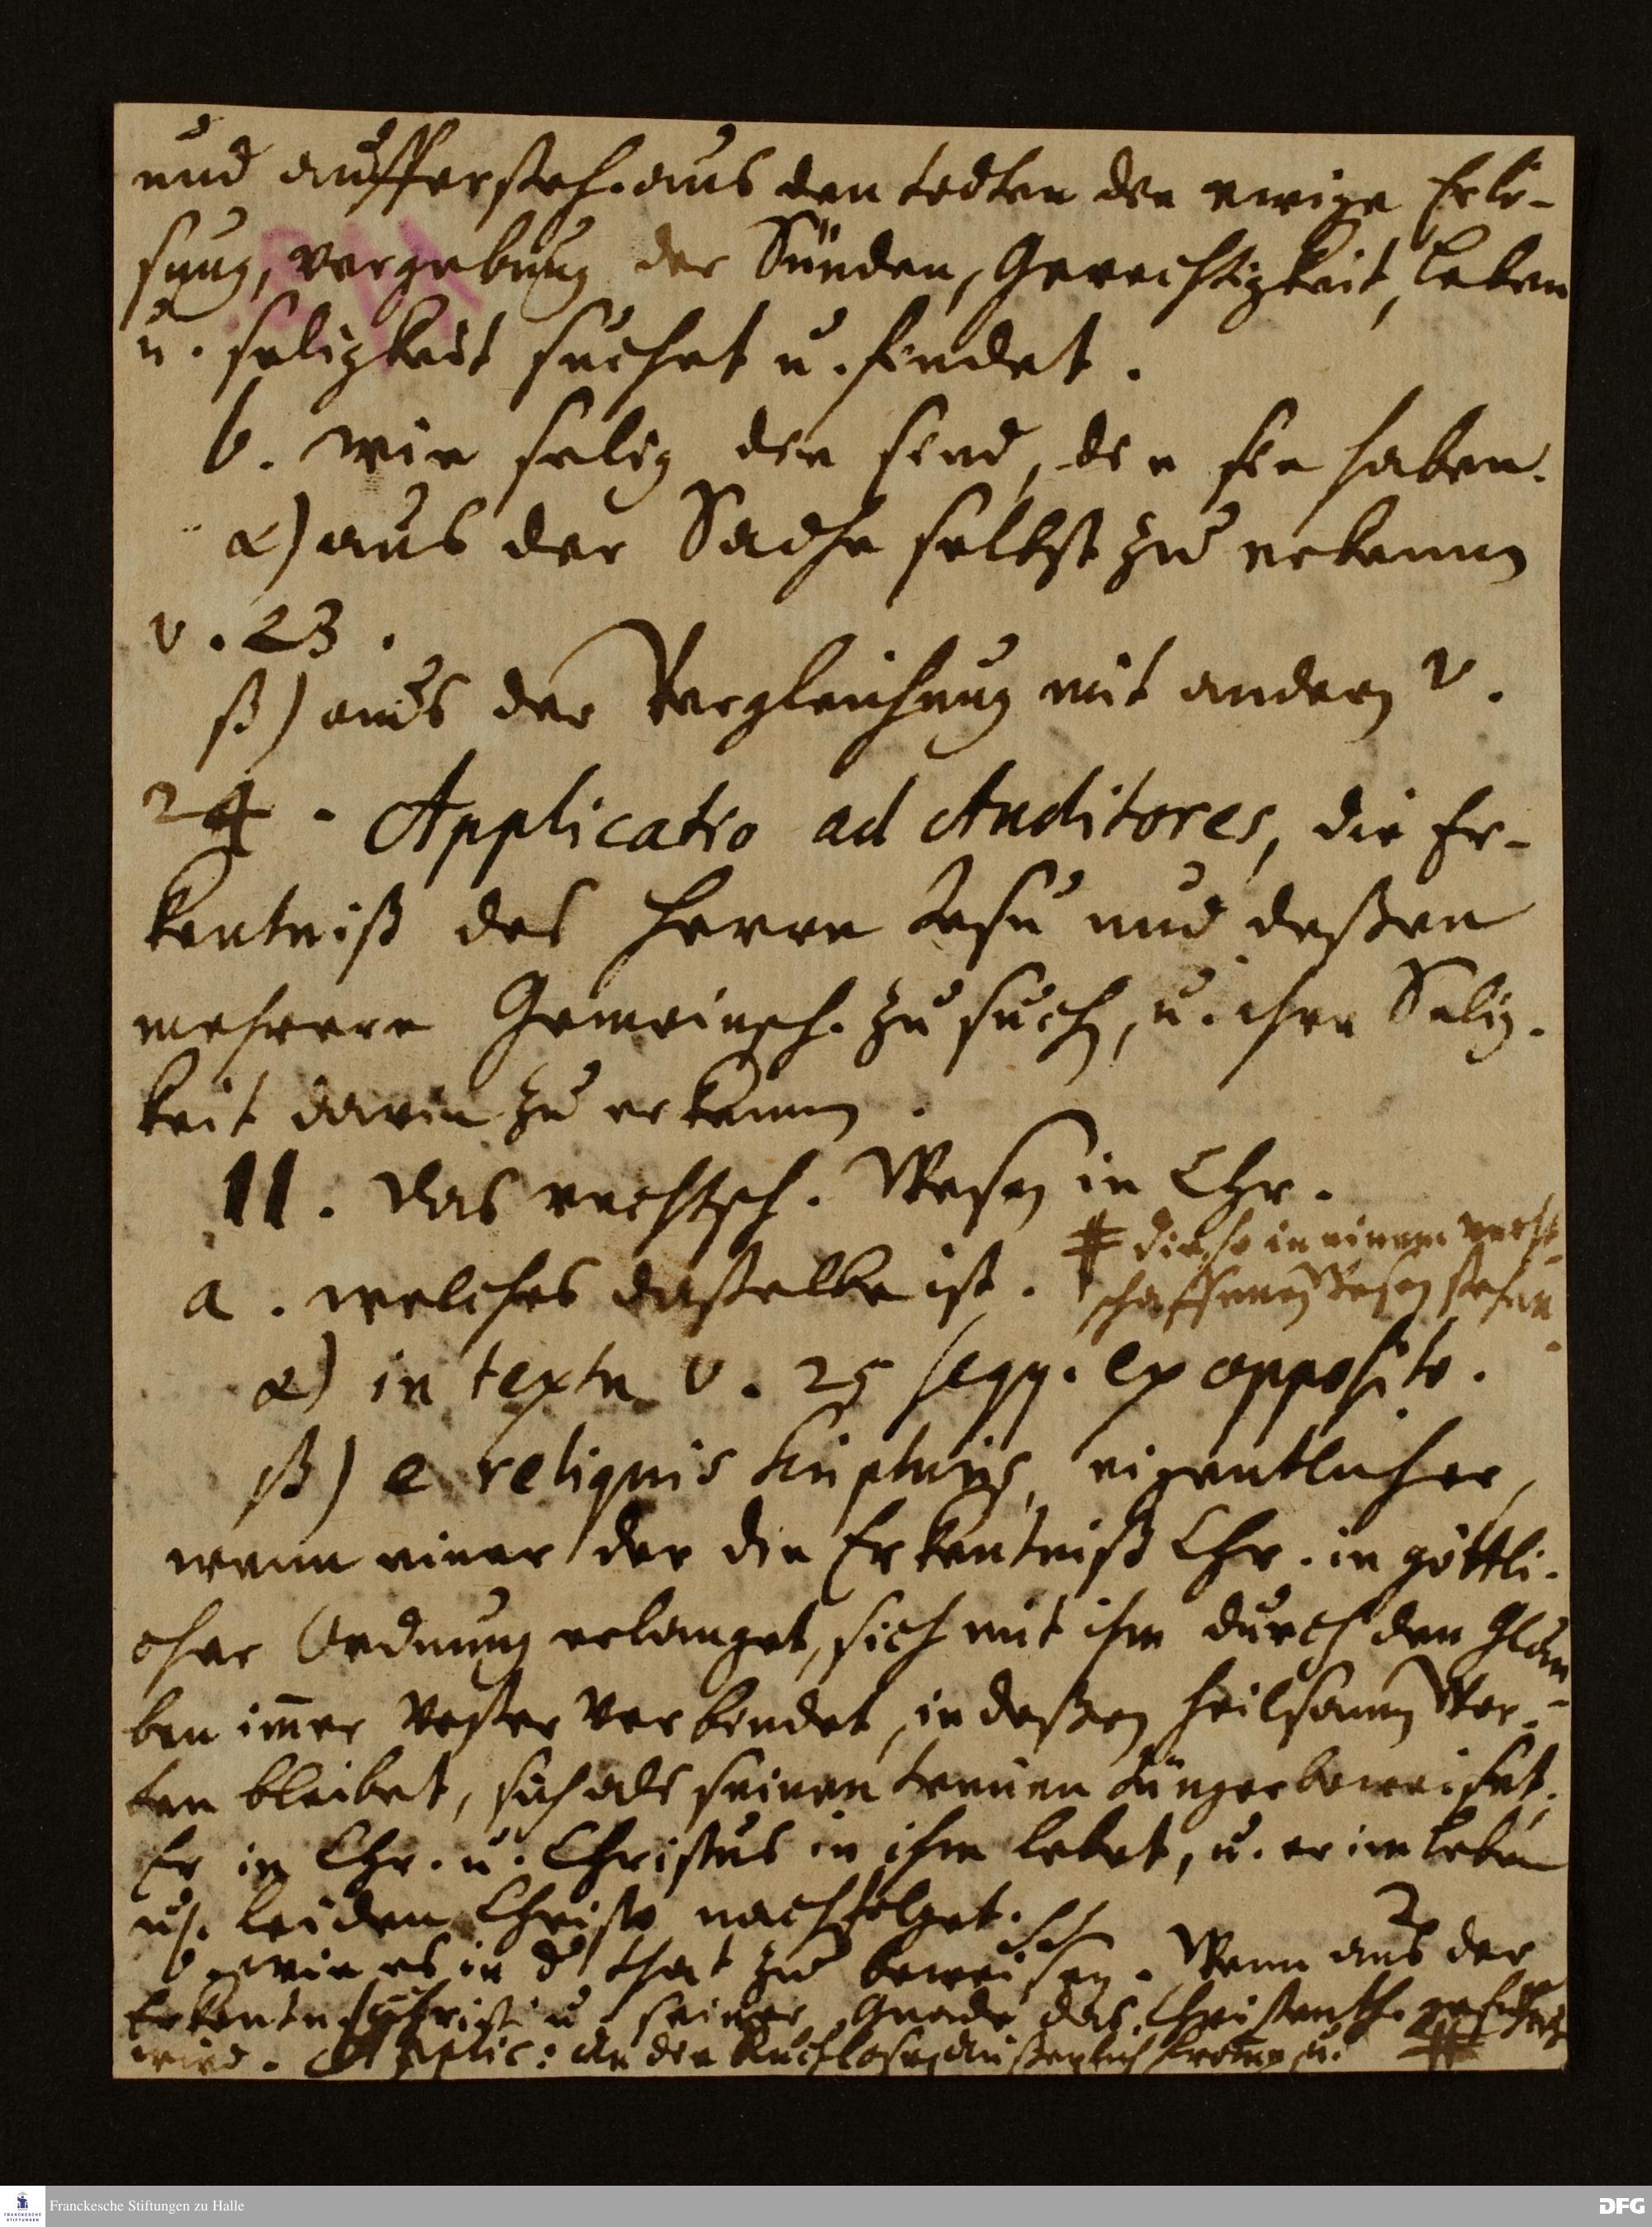 und auffersteh. aus den todten die ewige Erlö-
sung, vergebung der Sünden, Gerechtigkeit, leben
u. seligkeit suchet u. findet.
b. wie selig die sind, die sie haben.
α) aus der Sache selbst zu erkennen
v. 23.
ß) aus der Vergleichung mit andern v.
24. Applicatio ad Auditores, die Er-
kentniß des Herrn Jesu und deßen
mehrere Gemeinsch. zu suchen, u. ihre Selig-
keit darin zu erkennen.
II. Das rechtsch. Wesen in Chr.
# die so in einem recht-
a. welches daßelbe ist.
schaffenen Wesen stehen
α) in textu v. 25 seqq. ex opposito.
ß) e reliquis Scripturis, eigentlicher,
wenn einer der die Erkentniß Chr. in göttli-
cher Ordnung erlanget, sich mit ihm durch den Glau-
ben im̄er vester verbindet, in deßen heilsamen Wor-
ten bleibet, sich als seinen treuen Jünger beweiset,
Er in Chr. u. Christus in ihm lebet, u. er im leben
u. leiden Christo nachfolget.
b. wie es in d. that zu beweisen. Wenn aus der
Erkentn. Christi u. seiner Gnade das Christenth. geführet
wird. Applic: an die Ruchlosen, äußerlich fromme u. #
Franckesche Stiftungen zu Halle
FRANCKESCHE STIFTUNGEN
DFG